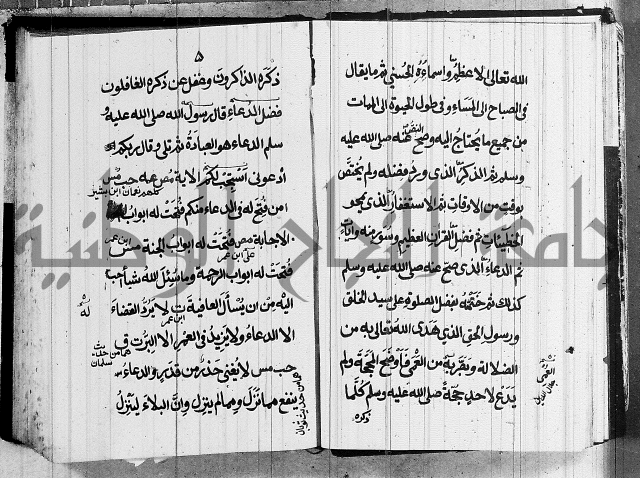 الله تعالى الاعظم واسماءه الحسنى ثم ما يقال
فى الصباح الى المساء وفى طول الحيوة الى الممات
من جميع ما يحتاج اليه وصح النص عنه صلى الله عليه
وسلم ثم الذكر الذى ورد فضله ولم يختص
بوقت من الاوقات ثم الاستغفار الذى يمحو
الخطيئات ثم فضل القران العظيم وسور منه وايات
ثم الدعاء الذى صح عنه صلى الله عليه وسلم
كذلك ثم ختمته بفضل الصلوة على سيد الخلق
ورسول الحق الذى هدى الله تعالى به من
الضلالة وبصر به من العمى فاوضح المحجة ولم
يدع لاحد حجة صلى الله عليه وسلم كلما
ذكره
٥
ذكره الذاكرون وغفل عن ذكره الغافلون
فضل الدعاء قال رسول الله صلى الله عليه و
سلم الدعاء هو العبادة ثم تلى وقال ربكم
ادعونى استجب لكم الاية مص عه حب مس
كلهم نعمان ابن بشير
من فتح له فى الدعاء منكم فتحت له ابواب
الاجابة مص فتحت له ابواب الجنة مس
ابن عمر
فتحت له ابواب الرحمة وما سئل الله شيأ احب
اليه من ان يسأل العافية ت لا يرد القضاء
الا الدعاء ولا يزيد فى العمر الا البر ت ق
حب مس لا يغنى حذر من قدر والدعاء
ينفع مما نزل ومما لم ينزل وان البلاء لينزل
جامعة النجاح الوطنية